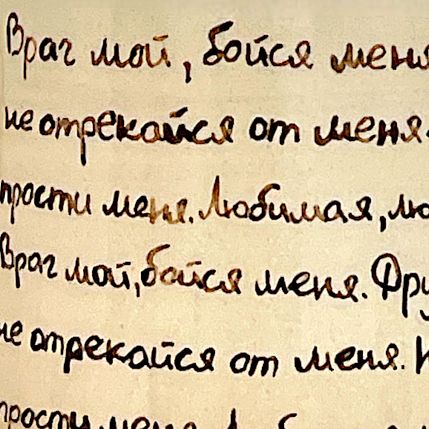 Враг мой, бойся меня
не отрекайся от меня.
прости меня. Любимая, лю
Враг мой, бойся меня. Дру
не отрекайся от меня. И
прости меня. Люб